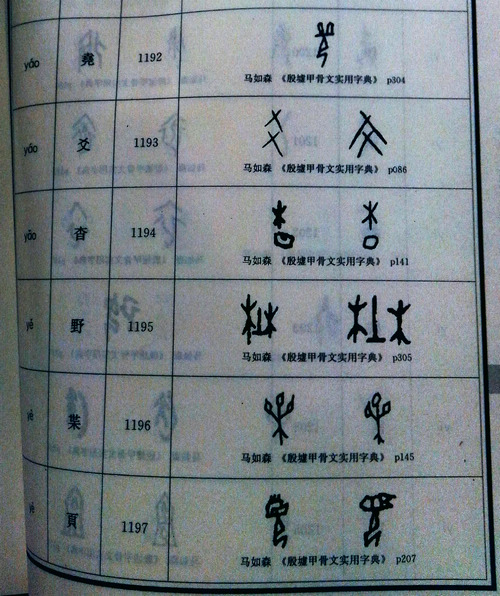 yáo 堯 1192
马如森 《殷墟甲骨文实用字典》 p304
yáo 爻 1193
马如森 《殷墟甲骨文实用字典》 p086
yǎo 杳 1194
马如森 《殷墟甲骨文实用字典》 p141
yě 野 1195
马如森 《殷墟甲骨文实用字典》 p305
yè 枼 1196
马如森 《殷墟甲骨文实用字典》 p145
yè 頁 1197
马如森 《殷墟甲骨文实用字典》 p207